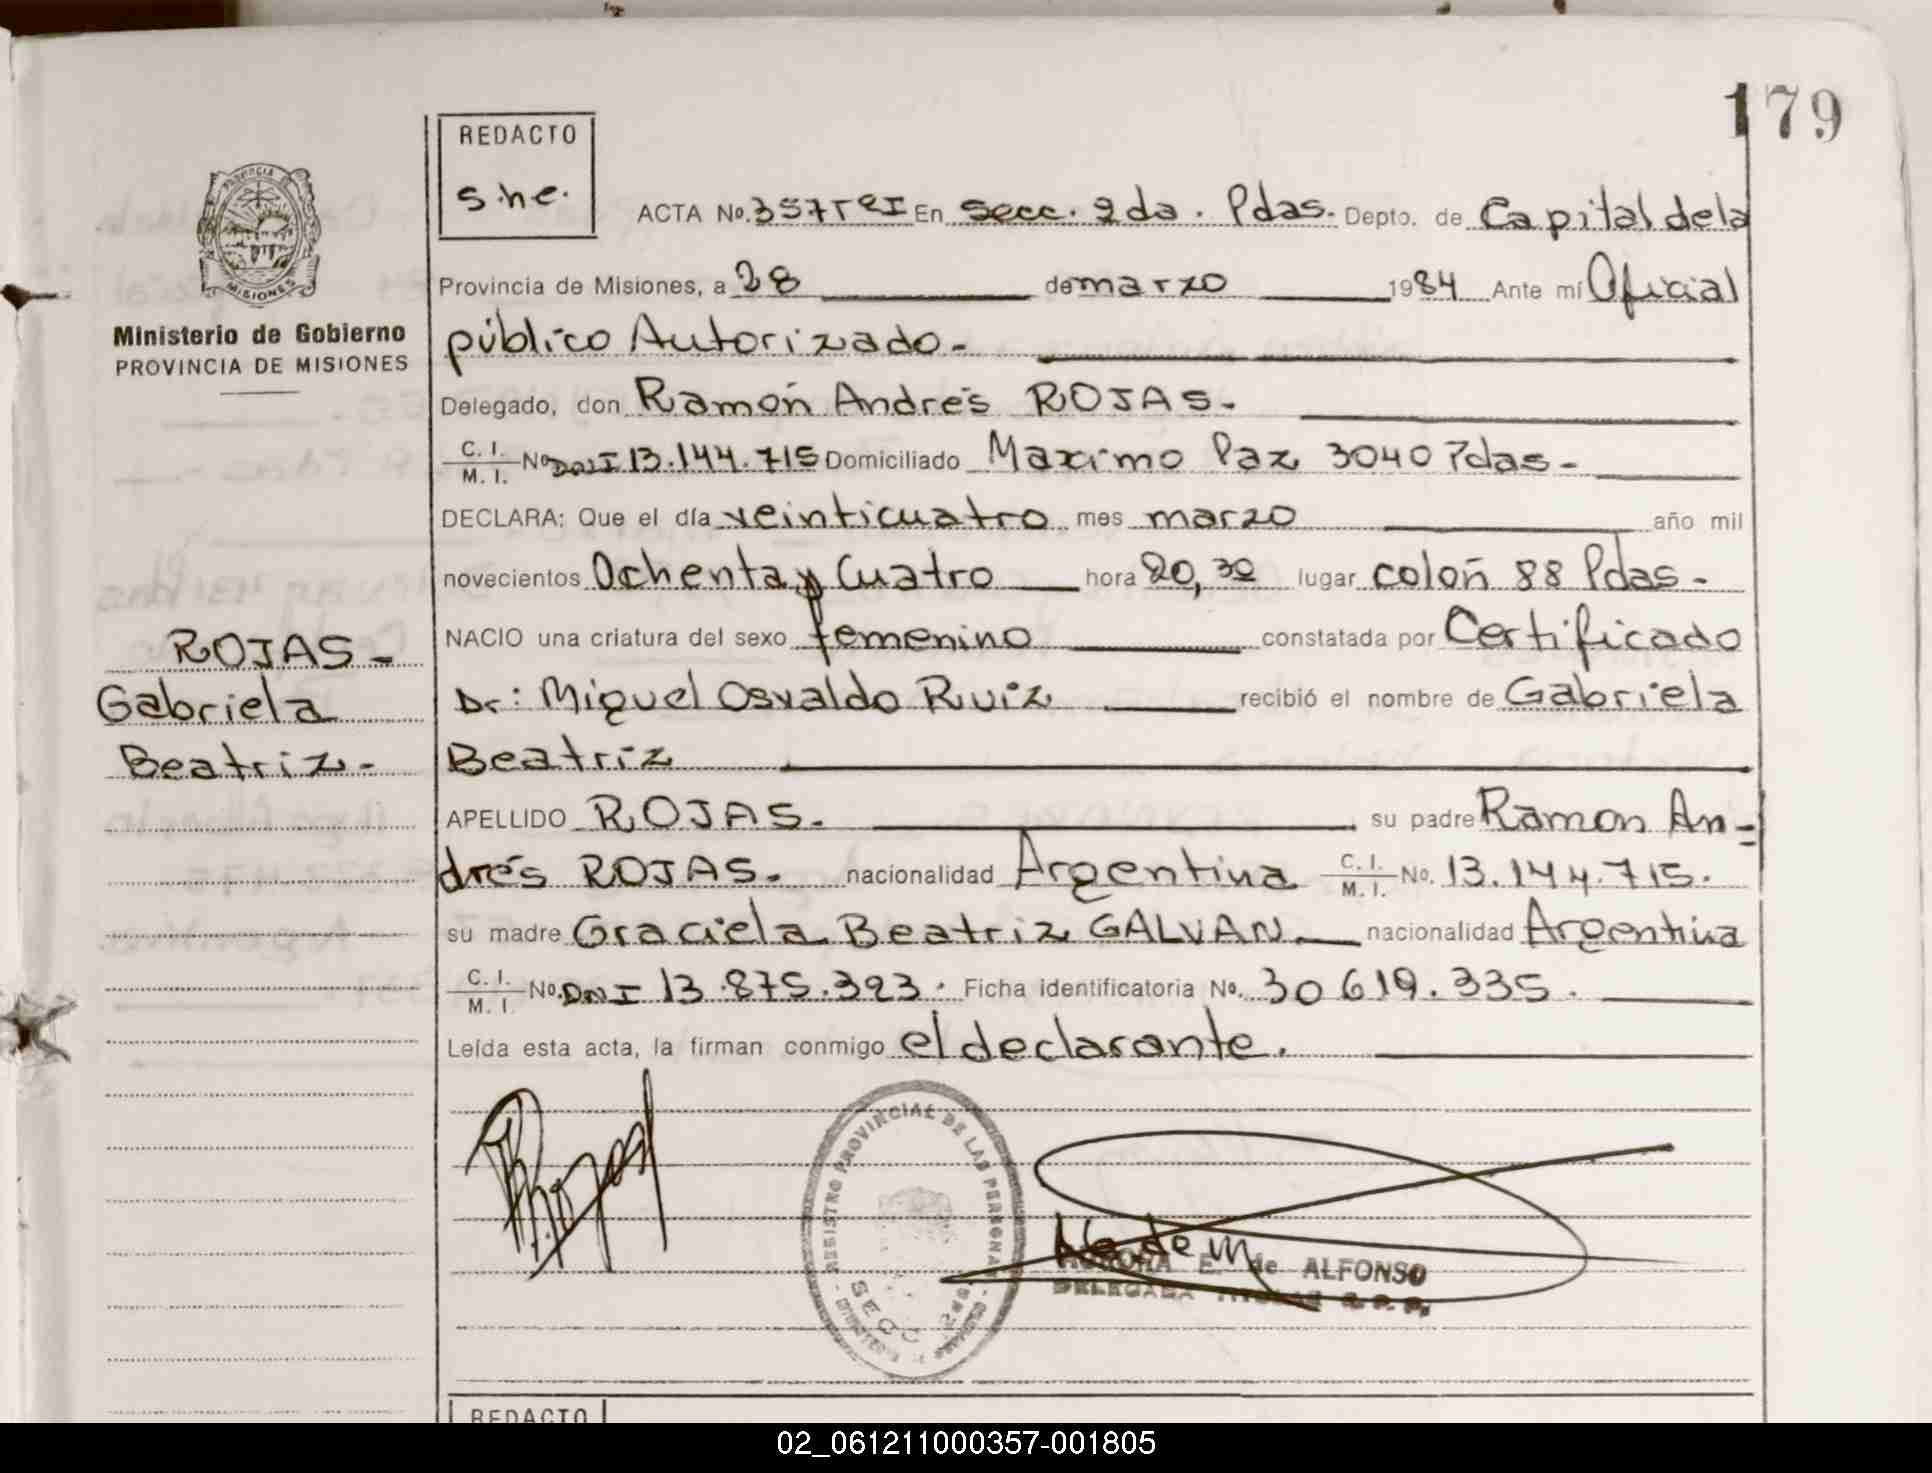 179
REDACTO
s.he.
PROVINCIA DE
MISIONES
Ministerio de Gobierno
PROVINCIA DE MISIONES
ACTA No. 357 TeI En Secc. 2da. Pdas. Depto. de Capital dela
Provincia de Misiones, a 28 de marzo 1984 Ante mí Oficial
público Autorizado.-
Delegado, don Ramón Andrés ROJAS.-
C. I. / M. I. No DNI 13.144.715 Domiciliado Maximo Paz 3040 Pdas-
DECLARA: Que el día veinticuatro mes marzo año mil
novecientos Ochenta y Cuatro hora 20,30 lugar colón 88 Pdas-
NACIO una criatura del sexo femenino constatada por Certificado
Dr: Miguel Osvaldo Ruiz recibió el nombre de Gabriela
Beatriz
APELLIDO ROJAS. su padre Ramon An-
drés ROJAS. nacionalidad Argentina C. I. / M. I. No. 13.144.715.
su madre Graciela Beatriz GALVAN. nacionalidad Argentina
C. I. / M. I. No. DNI 13.875.323. Ficha identificatoria No. 30 619.335.
Leída esta acta, la firman conmigo el declarante.
ROJAS-
Gabriela
Beatriz-
RRojas
REGISTRO PROVINCIAL DE LAS PERSONAS
SECC
E. de ALFONSO
DELEGADA TITULAR R.P.P.
REDACTO
02_061211000357-001805